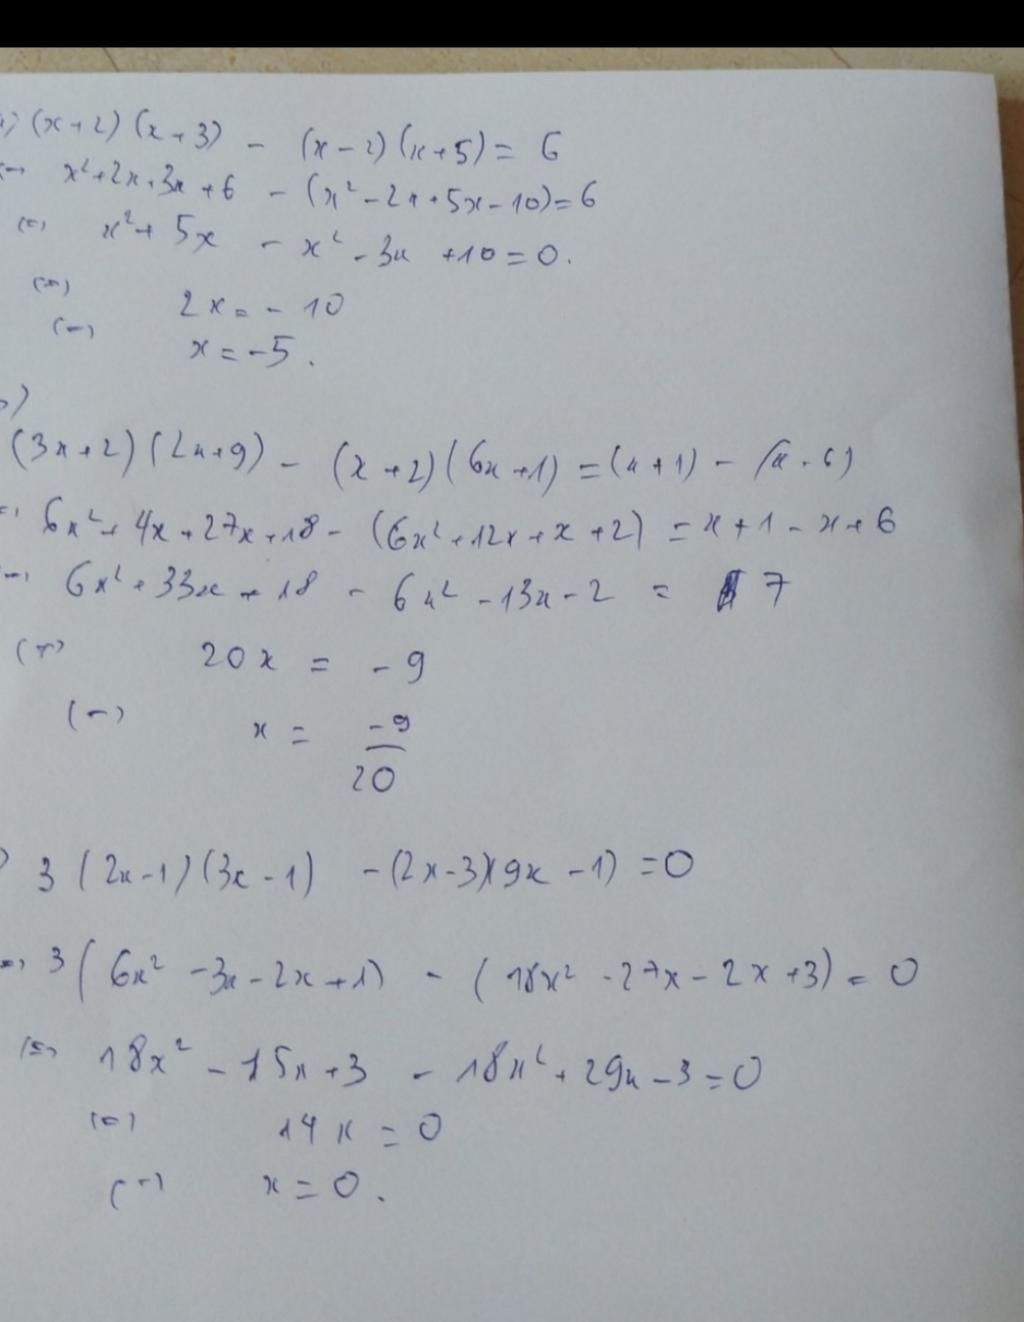 a) (x+2)(x+3) - (x-2)(x+5) = 6
(=) x²+2x+3x+6 - (x²-2x+5x-10)=6
(=) x²+5x - x²-3x+10=0.
(=) 2x=-10
(=) x=-5.
b)
(3x+2)(2x+9) - (x+2)(6x+1) = (x+1) - (x-6)
(=) 6x²+4x+27x+18 - (6x²+12x+x+2) = x+1-x+6
(=) 6x²+33x+18 - 6x²-13x-2 = 7
(=) 20x = -9
(=) x = -9/20
) 3(2x-1)(3x-1) -(2x-3)(9x-1)=0
(=) 3(6x²-3x-2x+1) - (18x²-27x-2x+3)=0
(=) 18x²-15x+3 - 18x²+29x-3=0
(=) 14x=0
(=) x=0.